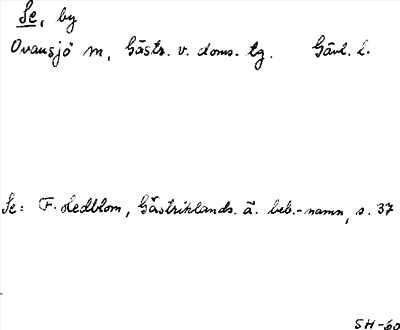 Se, by
Ovansjö sn, Gästr. v. doms. tg. Gävl. l.
Se: F. Hedblom, Gästriklands ä. beb.-namn, s. 37
SH-60